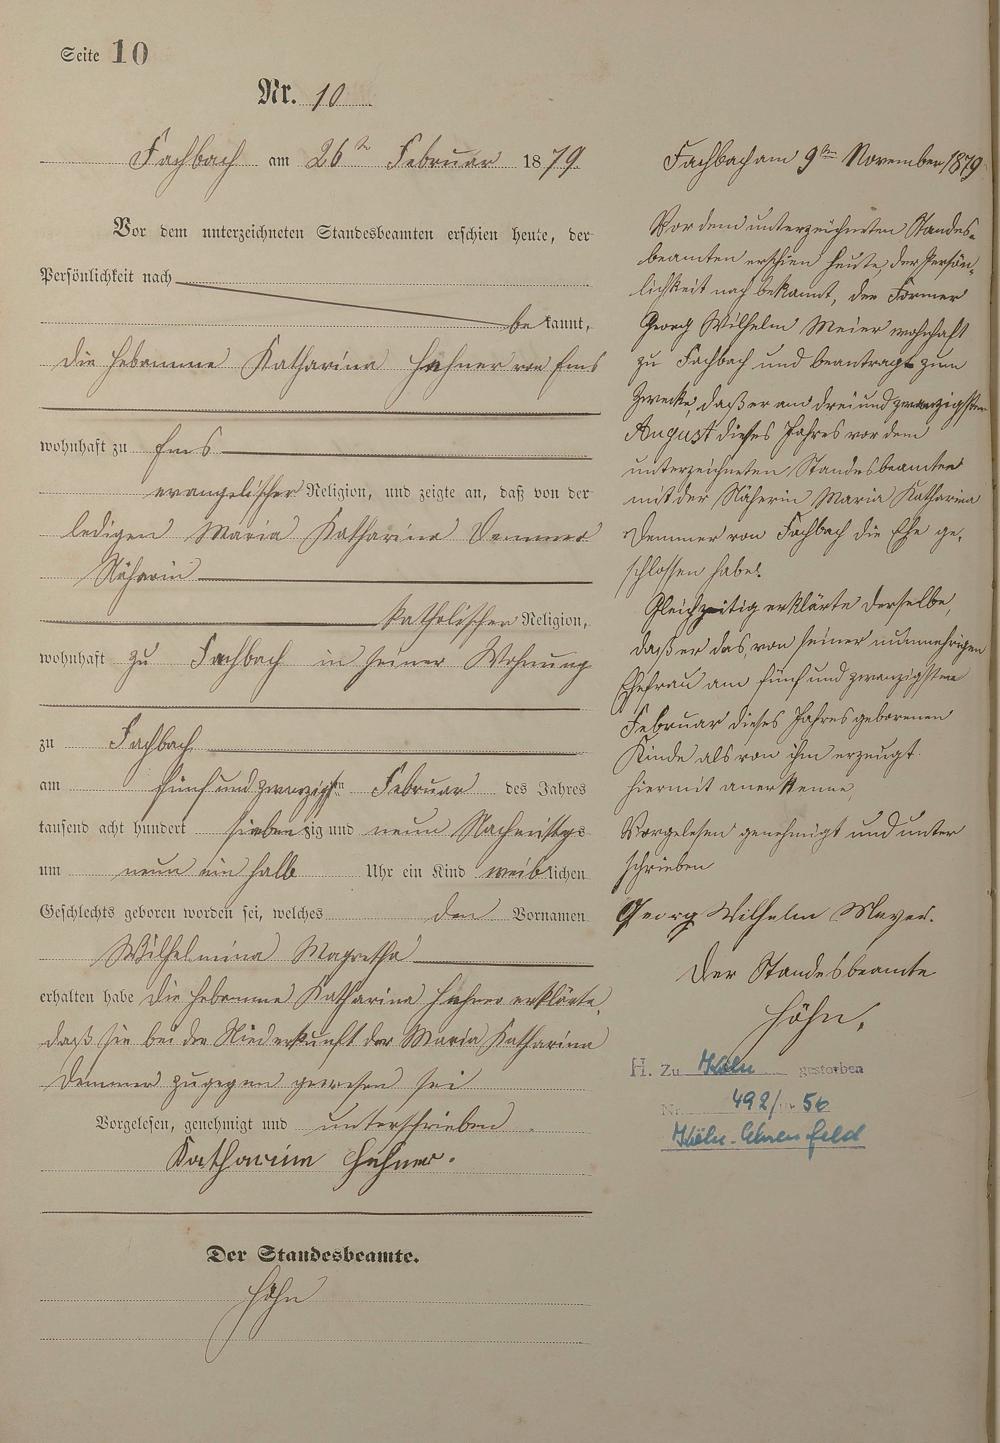 Seite 10
Nr. 10
Fachbach am 26ten Februar 1879.
Vor dem unterzeichneten Standesbeamten erschien heute, der
Persönlichkeit nach
be kannt,
die Hebamme Katharina Hehner von Ems
wohnhaft zu Ems
evangelischer Religion, und zeigte an, daß von der
ledigen Maria Katharina Demmer
Näherin
katholischer Religion,
wohnhaft zu Fachbach in seiner Wohnung
zu Fachbach
am fünf und zwanzigsten Februar des Jahres
tausend acht hundert siebenzig und neun Nachmittags
um neun ein halb Uhr ein Kind weiblichen
Geschlechts geboren worden sei, welches den Vornamen
Wilhelmina Magretha
erhalten habe die Hebamme Katharina Hehner erklärte,
daß sie bei der Niederkunft der Maria Katharina
Demmer zugegen gewesen sei
Vorgelesen, genehmigt und unterschrieben.
Katharina Hehner.
Der Standesbeamte.
Höhn
Fachbach am 9ten November 1879
Vor dem unterzeichneten Standes-
beamten erschien heute, der Persön-
lichkeit nach bekannt, der Former
Georg Wilhelm Meier wohnhaft
zu Fachbach und beantragt zum
Zwecke, daß er am drei und zwanzigsten
August dieses Jahres vor dem
unterzeichneten Standesbeamten
mit der Näherin Maria Katharina
Demmer von Fachbach die Ehe ge-
schlossen habe.
Gleichzeitig erklärte derselbe,
daß er das, von seiner nunmehrigen
Ehefrau am fünf und zwanzigsten
Februar dieses Jahres geborenen
Kinde als von ihm erzeugt
hiermit anerkenne,
Vorgelesen genehmigt und unter
schrieben
Georg Wilhelm Meyer.
Der Standesbeamte
Höhn,
H. Zu Köln gestorben
Nr. 492/ 56
Köln-Ehrenfeld